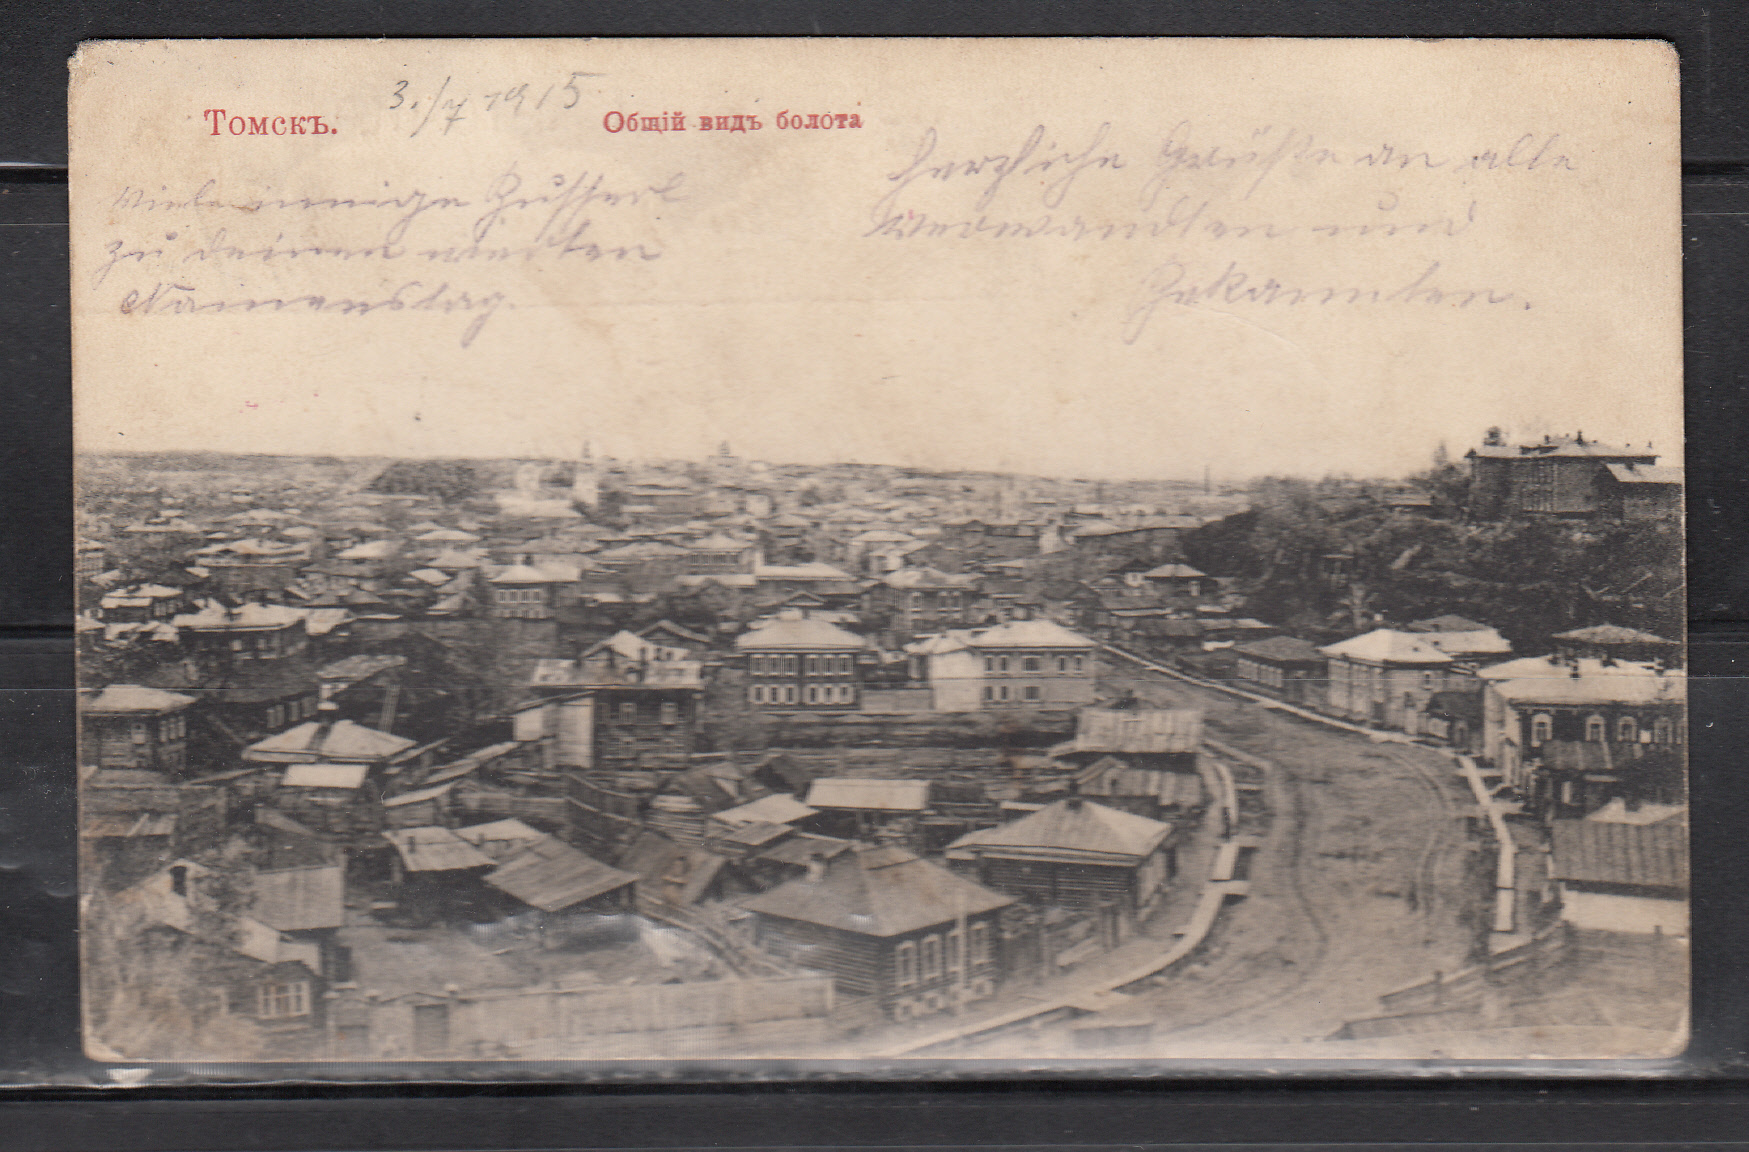 Томскъ.
3./7 1915
Общій видъ болота
Viele innige Busserl
zu deinen werten
Namenstag.
Herzliche Grüße an alle
Verwandten und
Bekannten.